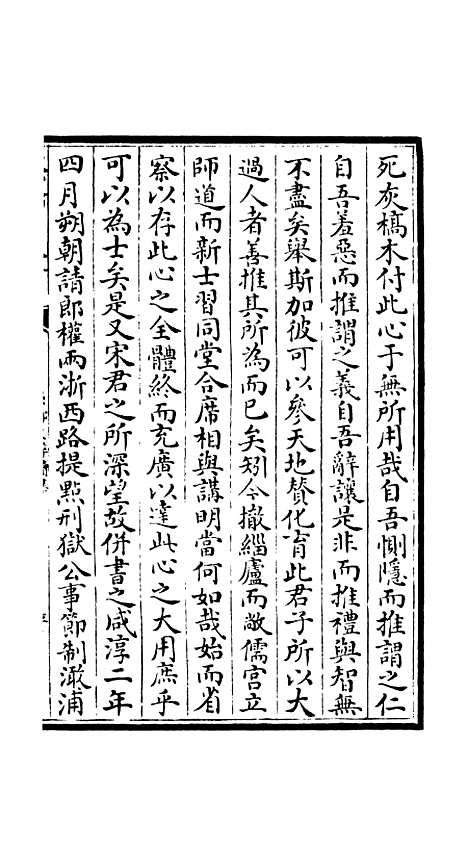 死灰槁木付此心于無所用哉自吾惻隱而推謂之仁
自吾羞惡而推謂之義自吾辭讓是非而推禮與智無
不盡矣舉斯加彼可以參天地贊化育此君子所以大
過人者善推其所為而已矣矧今撤緇廬而敞儒宮立
師道而新士習同堂合席相與講明當何如哉始而省
察以存此心之全體終而充廣以達此心之大用庶乎
可以為士矣是又宋君之所深望故併書之咸淳二年
四月朔朝請郎權兩浙西路提點刑獄公事節制澉浦